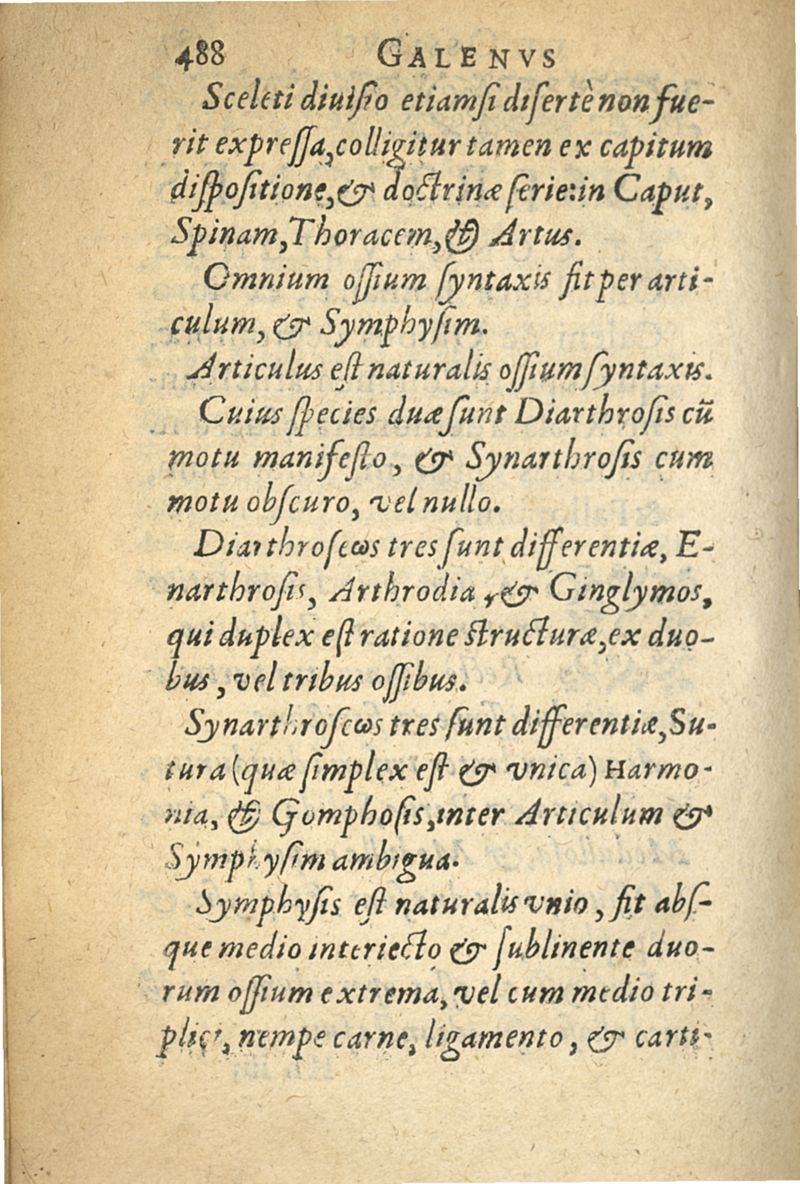 488 GALENVS
Sceleti diuiſio etiamſi diſertè non fue-
rit expreſſa, colligitur tamen ex capitum
diſpoſitione, & doctrinæ ſerie: in Caput,
Spinam, Thoracem, & Artus.
Omnium oſſium ſyntaxis fit per arti-
culum, & Symphyſim.
Articulus eſt naturalis oſſium ſyntaxis.
Cuius ſpecies duæ ſunt Diarthroſis cū
motu manifeſto, & Synarthroſis cum
motu obſcuro, vel nullo.
Diarthroſeωs tres ſunt differentiæ, E-
narthroſis, Arthrodia, & Ginglymos,
qui duplex eſt ratione ſtructuræ, ex duo-
bus, vel tribus oſſibus.
Synarthroſeωs tres ſunt differentiæ, Su-
tura (quæ ſimplex eſt & vnica) Harmo-
nia, & Gomphoſis, inter Articulum &
Symphyſim ambigua.
Symphyſis eſt naturalis vnio, fit abſ-
que medio interiecto & ſublinente duo-
rum oſſium extrema, vel cum medio tri-
plici, nempe carne, ligamento, & carti-